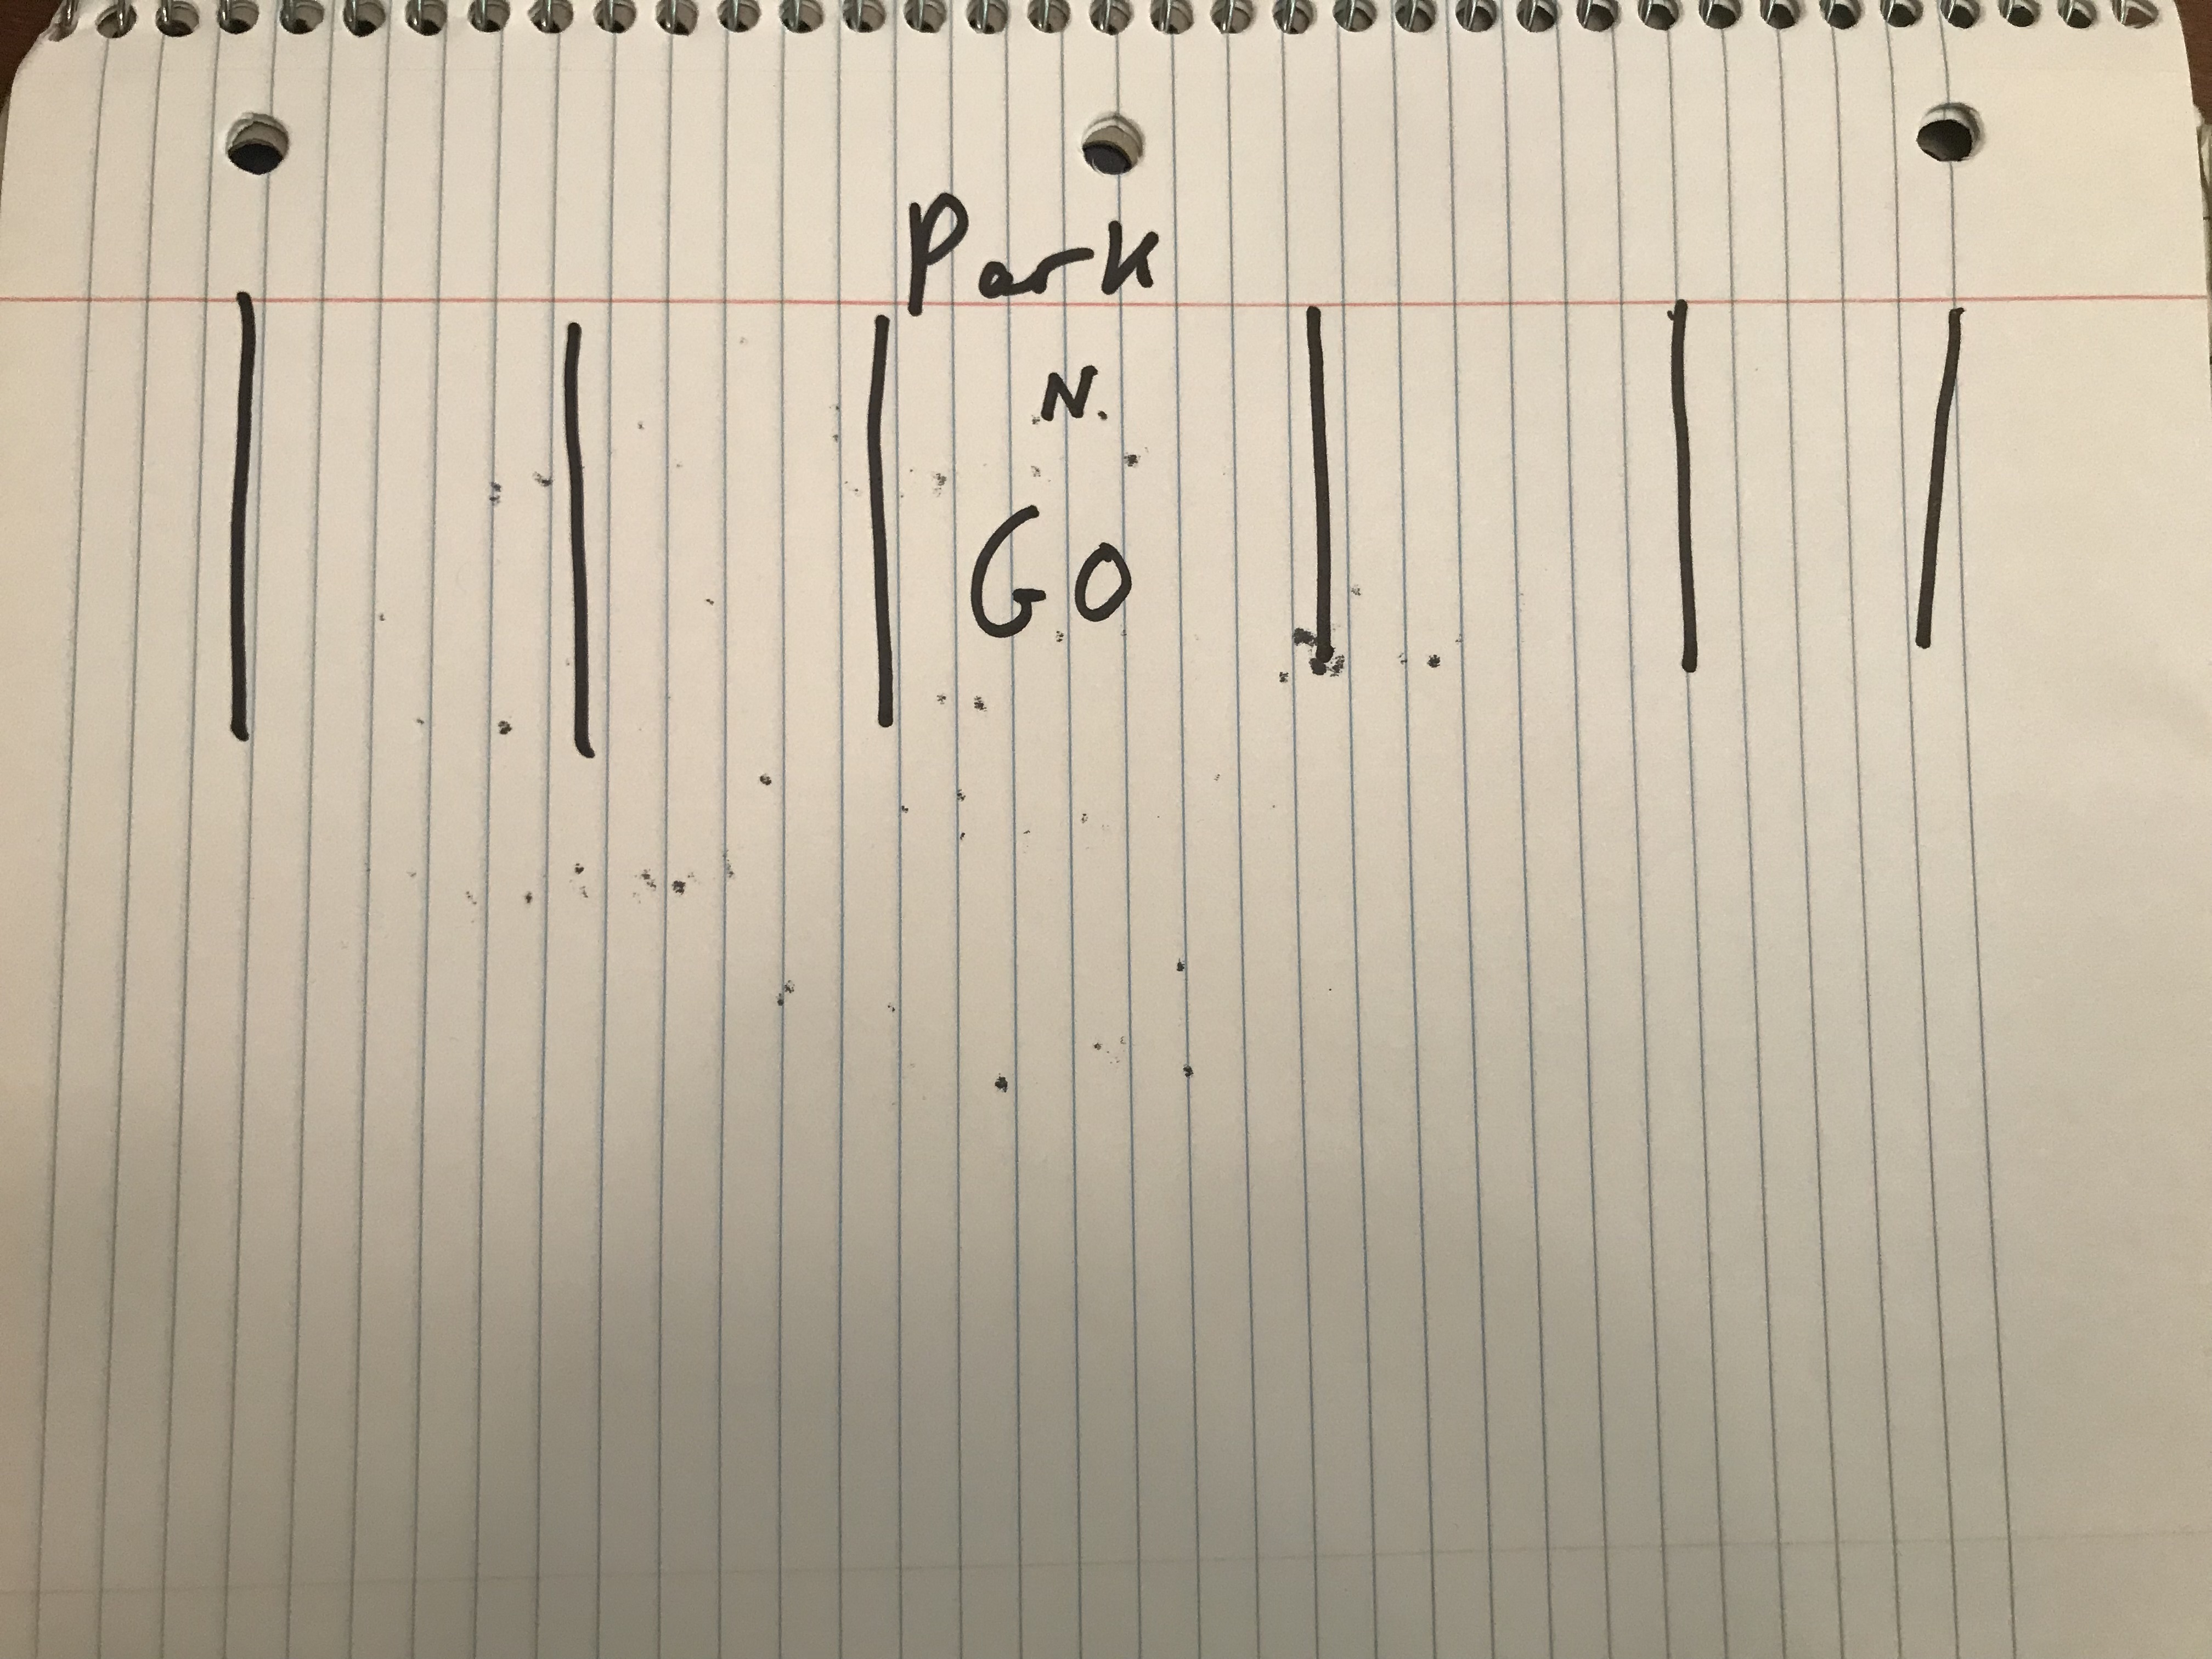 Park
N.
GO